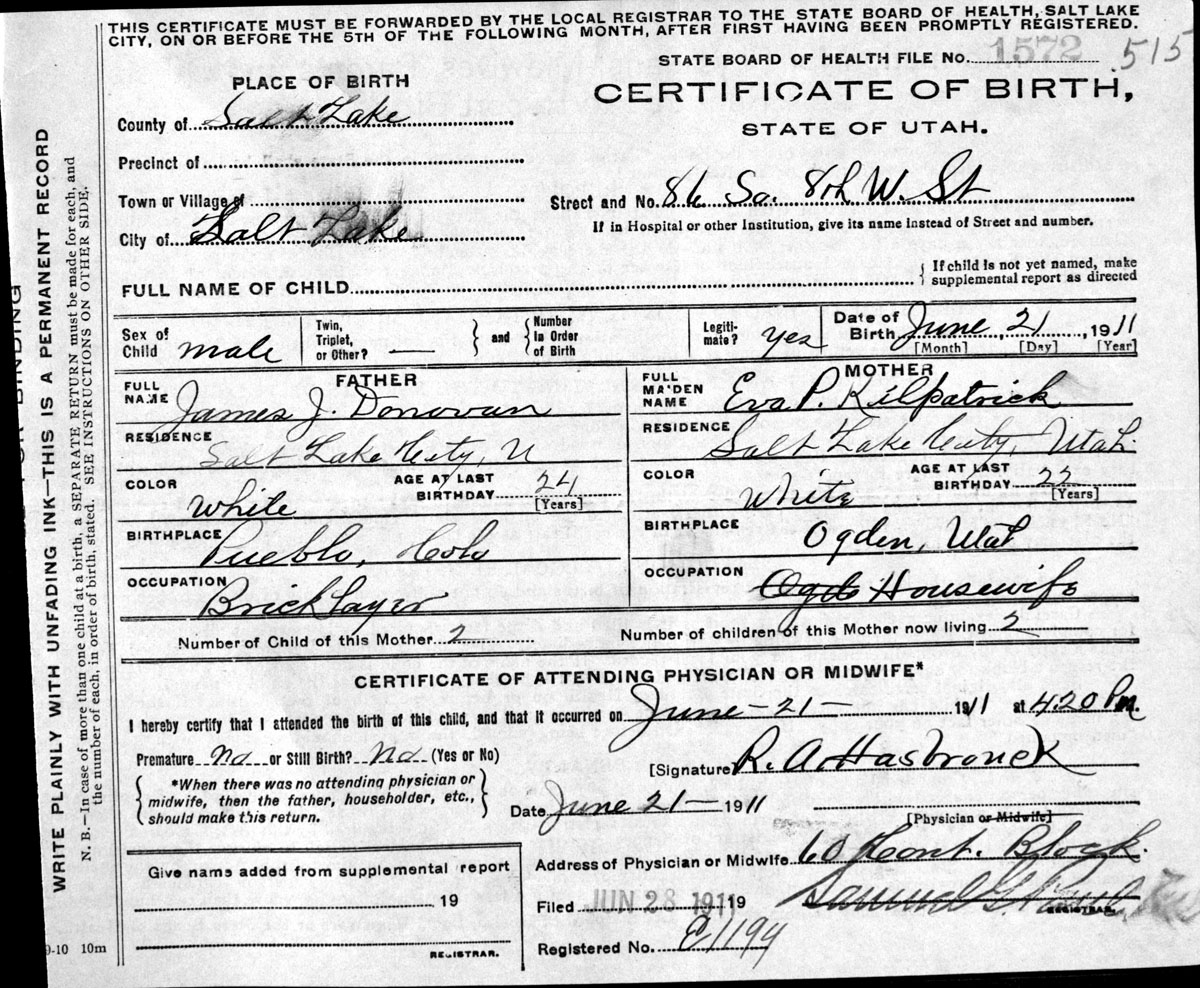 THIS CERTIFICATE MUST BE FORWARDED BY THE LOCAL REGISTRAR TO THE STATE BOARD OF HEALTH, SALT LAKE
CITY, ON OR BEFORE THE 5TH OF THE FOLLOWING MONTH, AFTER FIRST HAVING BEEN PROMPTLY REGISTERED.
STATE BOARD OF HEALTH FILE No. 1572 515
PLACE OF BIRTH
CERTIFICATE OF BIRTH,
STATE OF UTAH.
County of Salt Lake
Precinct of
Town or Village of
Street and No. 86 So. 8th W. St
City of Salt Lake
If in Hospital or other Institution, give its name instead of Street and number.
FULL NAME OF CHILD
If child is not yet named, make
supplemental report as directed
Sex of Child male
Twin, Triplet, or Other? —
and Number In Order of Birth
Legiti-mate? yes
Date of Birth June 21, 1911
[Month] [Day] [Year]
FATHER
FULL NAME James J. Donovan
RESIDENCE Salt Lake City, U
COLOR White
AGE AT LAST BIRTHDAY 24
[Years]
BIRTHPLACE Pueblo, Colo
OCCUPATION Bricklayer
MOTHER
FULL MAIDEN NAME Eva P. Kilpatrick
RESIDENCE Salt Lake City, Utah.
COLOR White
AGE AT LAST BIRTHDAY 22
[Years]
BIRTHPLACE Ogden, Utah
OCCUPATION Ogde Housewife
Number of Child of this Mother 2
Number of children of this Mother now living 2
CERTIFICATE OF ATTENDING PHYSICIAN OR MIDWIFE*
I hereby certify that I attended the birth of this child, and that it occurred on June - 21 - 1911 at 4:20 Pm.
Premature No or Still Birth? No (Yes or No)
*When there was no attending physician or
midwife, then the father, householder, etc.,
should make this return.
[Signature R. A. Hasbrouck
Date June 21 - 1911
[Physician or Midwife]
Address of Physician or Midwife 60 Block.
Give name added from supplemental report
19
REGISTRAR.
Filed JUN 28 1911 19
Samuel G. Paul
REGISTRAR.
Registered No. C1194
9-10 10m
FOR BINDING
WRITE PLAINLY WITH UNFADING INK—THIS IS A PERMANENT RECORD
N. B.—In case of more than one child at a birth, a SEPARATE RETURN must be made for each, and
the number of each, in order of birth, stated. SEE INSTRUCTIONS ON OTHER SIDE.